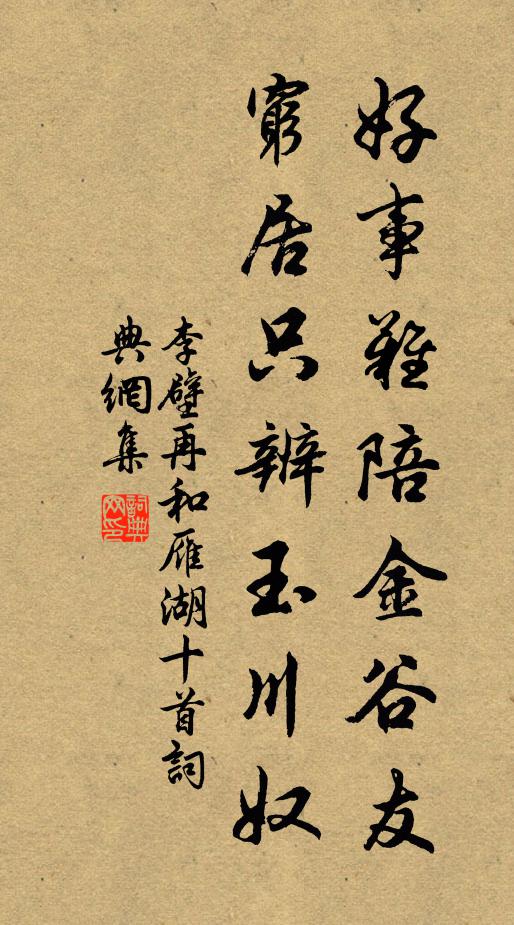 好事難陪金谷友
窮居只辦玉川奴
李壁再和雁湖十首詞
典網集
詞典網印